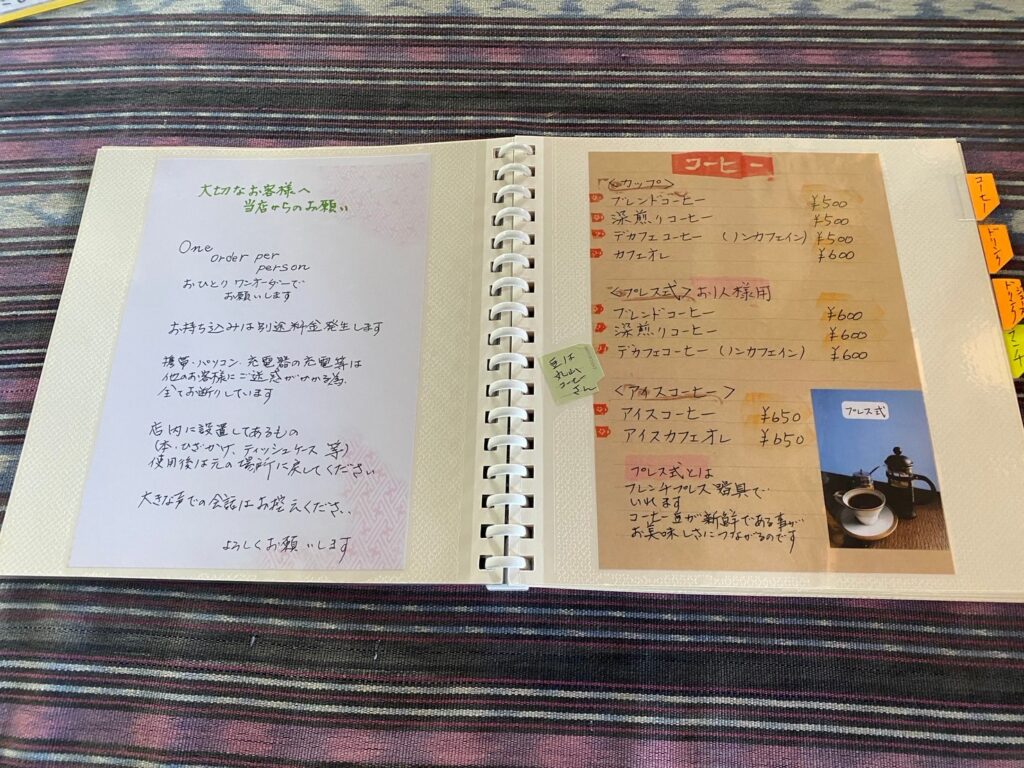 大切なお客様へ
当店からのお願い
One
order per
person
おひとりワンオーダーで
お願いします
お持ち込みは別途料金発生します
携帯・パソコン・充電器の充電等は
他のお客様にご迷惑がかかる為、
全てお断りしています
店内に設置してあるもの
(本・ひざかけ、ティッシュケース 等)
使用後は元の場所に戻してください
大きな声での会話はお控えください
よろしくお願いします
豆は
丸山
コーヒー
さん
コーヒー
<カップ>
ブレンドコーヒー ¥500
深煎りコーヒー ¥500
デカフェコーヒー (ノンカフェイン) ¥500
カフェオレ ¥600
<プレス式> お1人様用
ブレンドコーヒー ¥600
深煎りコーヒー ¥600
デカフェコーヒー (ノンカフェイン) ¥600
<アイスコーヒー>
アイスコーヒー ¥650
アイスカフェオレ ¥650
プレス式
プレス式とは
フレンチプレス器具で
いれます
コーヒー豆が新鮮である事が
お美味しさにつながるのです
コーヒー
ドリンク
ドリンク